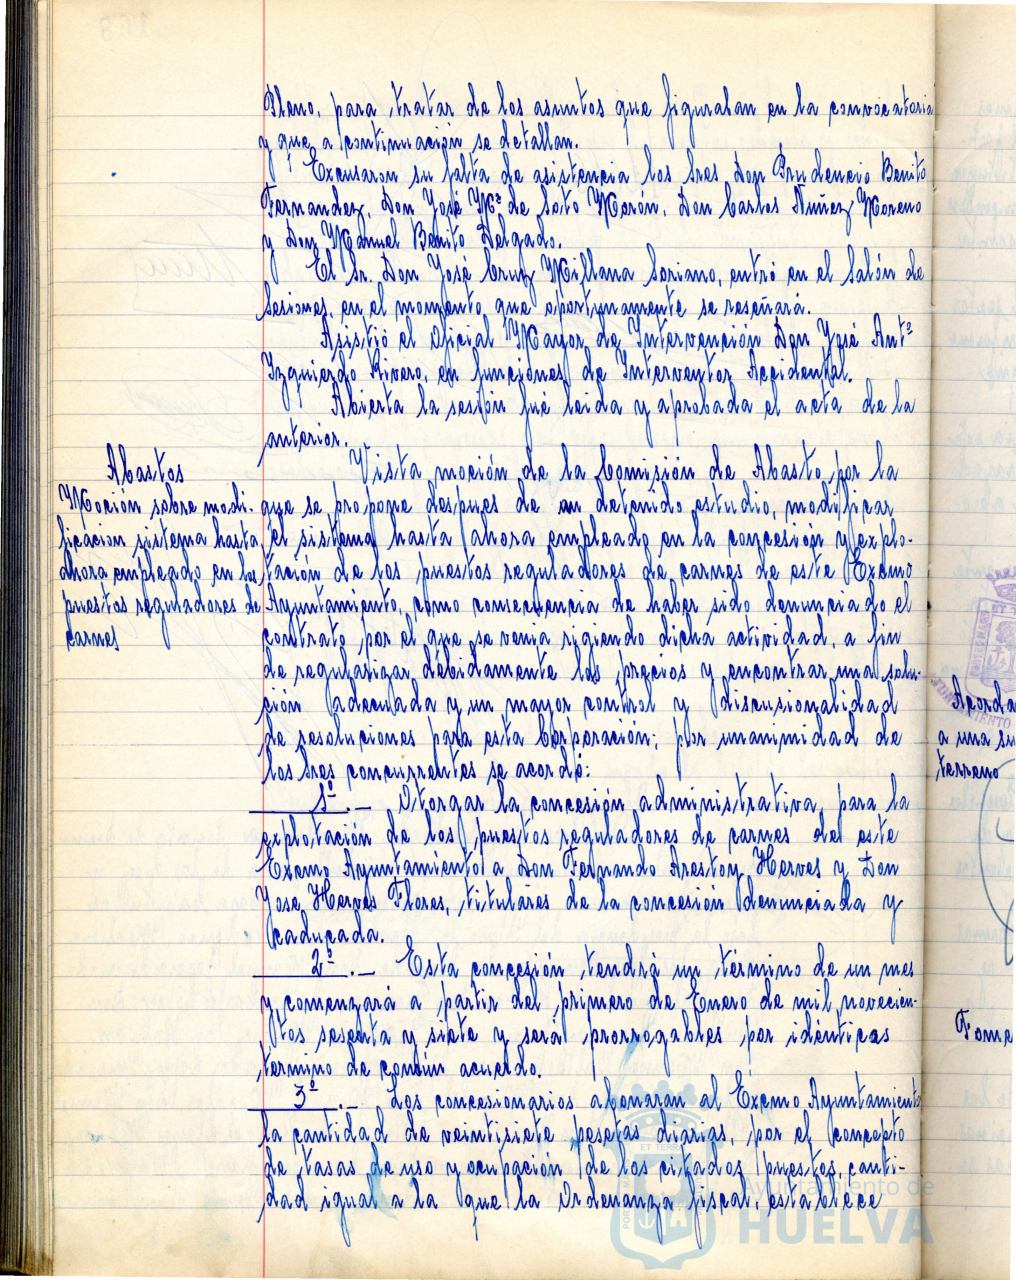 Pleno, para tratar de los asuntos que figuraban en la convocatoria
y que a continuación se detallan.
Excusaron su falta de asistencia los Sres Don Prudencio Benito
Fernandez, Don José Mª de Soto Morón, Don Carlos Nuñez Moreno
y Don Manuel Benito Delgado.
El Sr. Don José Cruz Millana Soriano, entró en el Salón de
Sesiones, en el momento que oportunamente se reseñará.
Asistió el Oficial Mayor de Intervención Don José Antº
Izquierdo Rivero, en funciones de Interventor Accidental.
Abierta la sesión fué leida y aprobada el acta de la
anterior.
Abastos
Moción sobre modi-
ficacion sistema hasta
ahora empleado en los
puestos reguladores de
carnes
Vista moción de la Comisión de Abasto, por la
que se propone despues de un detenido estudio, modificar
el sistema hasta ahora empleado en la concesión y explo-
tación de los puestos reguladores de carnes de este Excmo
Ayuntamiento, como consecuencia de haber sido denunciado el
contrato por el que se venia rigiendo dicha actividad, a fin
de regularizar debidamente los precios y encontrar una solu-
ción adecuada y un mayor control y discusionalidad
de resoluciones para esta Corporación; por unanimidad de
los Sres concurrentes se acordó:
1º.— Otorgar la concesión administrativa, para la
explotación de los puestos reguladores de carnes de este
Excmo Ayuntamiento a Don Fernando Arestoy Herves y Don
Jose Herves Flores, titulares de la concesión denunciada y
caducada.
2º.— Esta concesión tendrá un término de un mes
y comenzará a partir del primero de Enero de mil novecien-
tos sesenta y siete y será prorrogables por idénticos
termino de común acuerdo.
3º.— Los concesionarios abonaran al Excmo Ayuntamiento
la cantidad de veintisiete pesetas diarias, por el concepto
de tasas de uso y ocupación de los citados puestos, canti-
dad igual a la que la Ordenanza fiscal establece
a una su
terreno
Ayuntamiento de
HUELVA